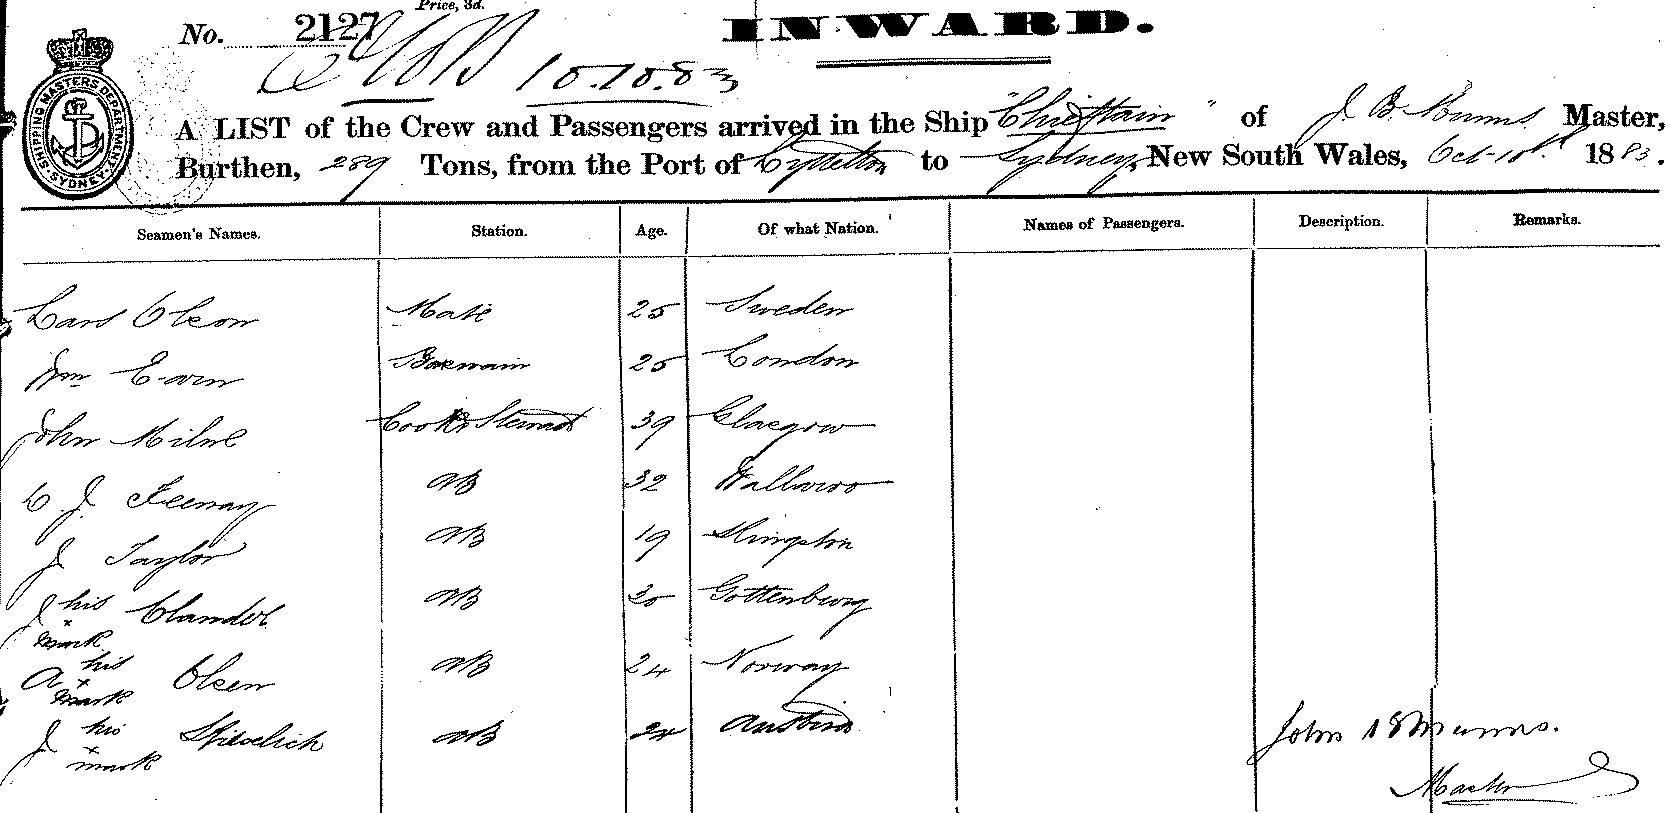 Price, 3d.
No. 2127
INWARD.
10.10.83
SHIPPING MASTERS DEPARTMENT SYDNEY
A LIST of the Crew and Passengers arrived in the Ship "Chieftain" of J. B. Munns Master,
Burthen, 289 Tons, from the Port of Lyttelton to Sydney, New South Wales, Oct 10th 1883.
Seamen's Names. Station. Age. Of what Nation. Names of Passengers. Description. Remarks.
Lars Olson Mate 25 Sweden
Wm Earn Boswain 25 London
John Milne Cook & Steward 39 Glasgow
C. J. Feenay AB 32 Wallaroo
J Taylor AB 19 
J his x mark Olander AB 20 Gottenburg
A his x mark Olsen AB 24 Norway
J his x mark AB 24 Austria
John B Munns.
Master